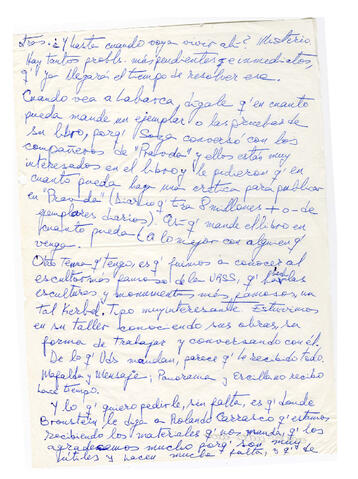 tros: ¿Y hasta cuando voy a vivir ahí? Misterio.
Hay tantos probls. más pendientes e inmediatos,
q' ya llegará el tiempo de resolver ese.
Cuando vea a Labarca, dígale q' en cuanto
pueda mande un ejemplar o las pruebas de
su libro, porq' conversó con los
compañeros de "Pravda" y ellos están muy
interesados en el libro y le pidieron q' en
cuanto pueda haga una crítica para publicar
en "Pravda" (diario q' tira 8 millones + o - de
ejemplares diarios). Así q' mande el libro en
cuanto pueda (a lo mejor con alguien q'
venga.
Otro tema q' tengo, es q' fuimos a conocer al
escultor más famoso de la URSS, q' hizo las
esculturas y monumentos más famosos, un
tal Kerbel. Tipo muy interesante. Estuvimos
en su taller conociendo sus obras, su
forma de trabajar y conversando con él.
De lo q' Uds mandan, parece q' he recibido todo.
Mafalda y Mensaje; Panorama y Ercilla no recibo
hace tiempo.
Y lo q' quiero pedirle, sin falta, es q' donde
Bronstein le diga a Rolando Carrasco q' estamos
recibiendo los materiales q' nos manda, q' los
agradecemos mucho porq' son muy
útiles y hacen mucha falta, y q' de